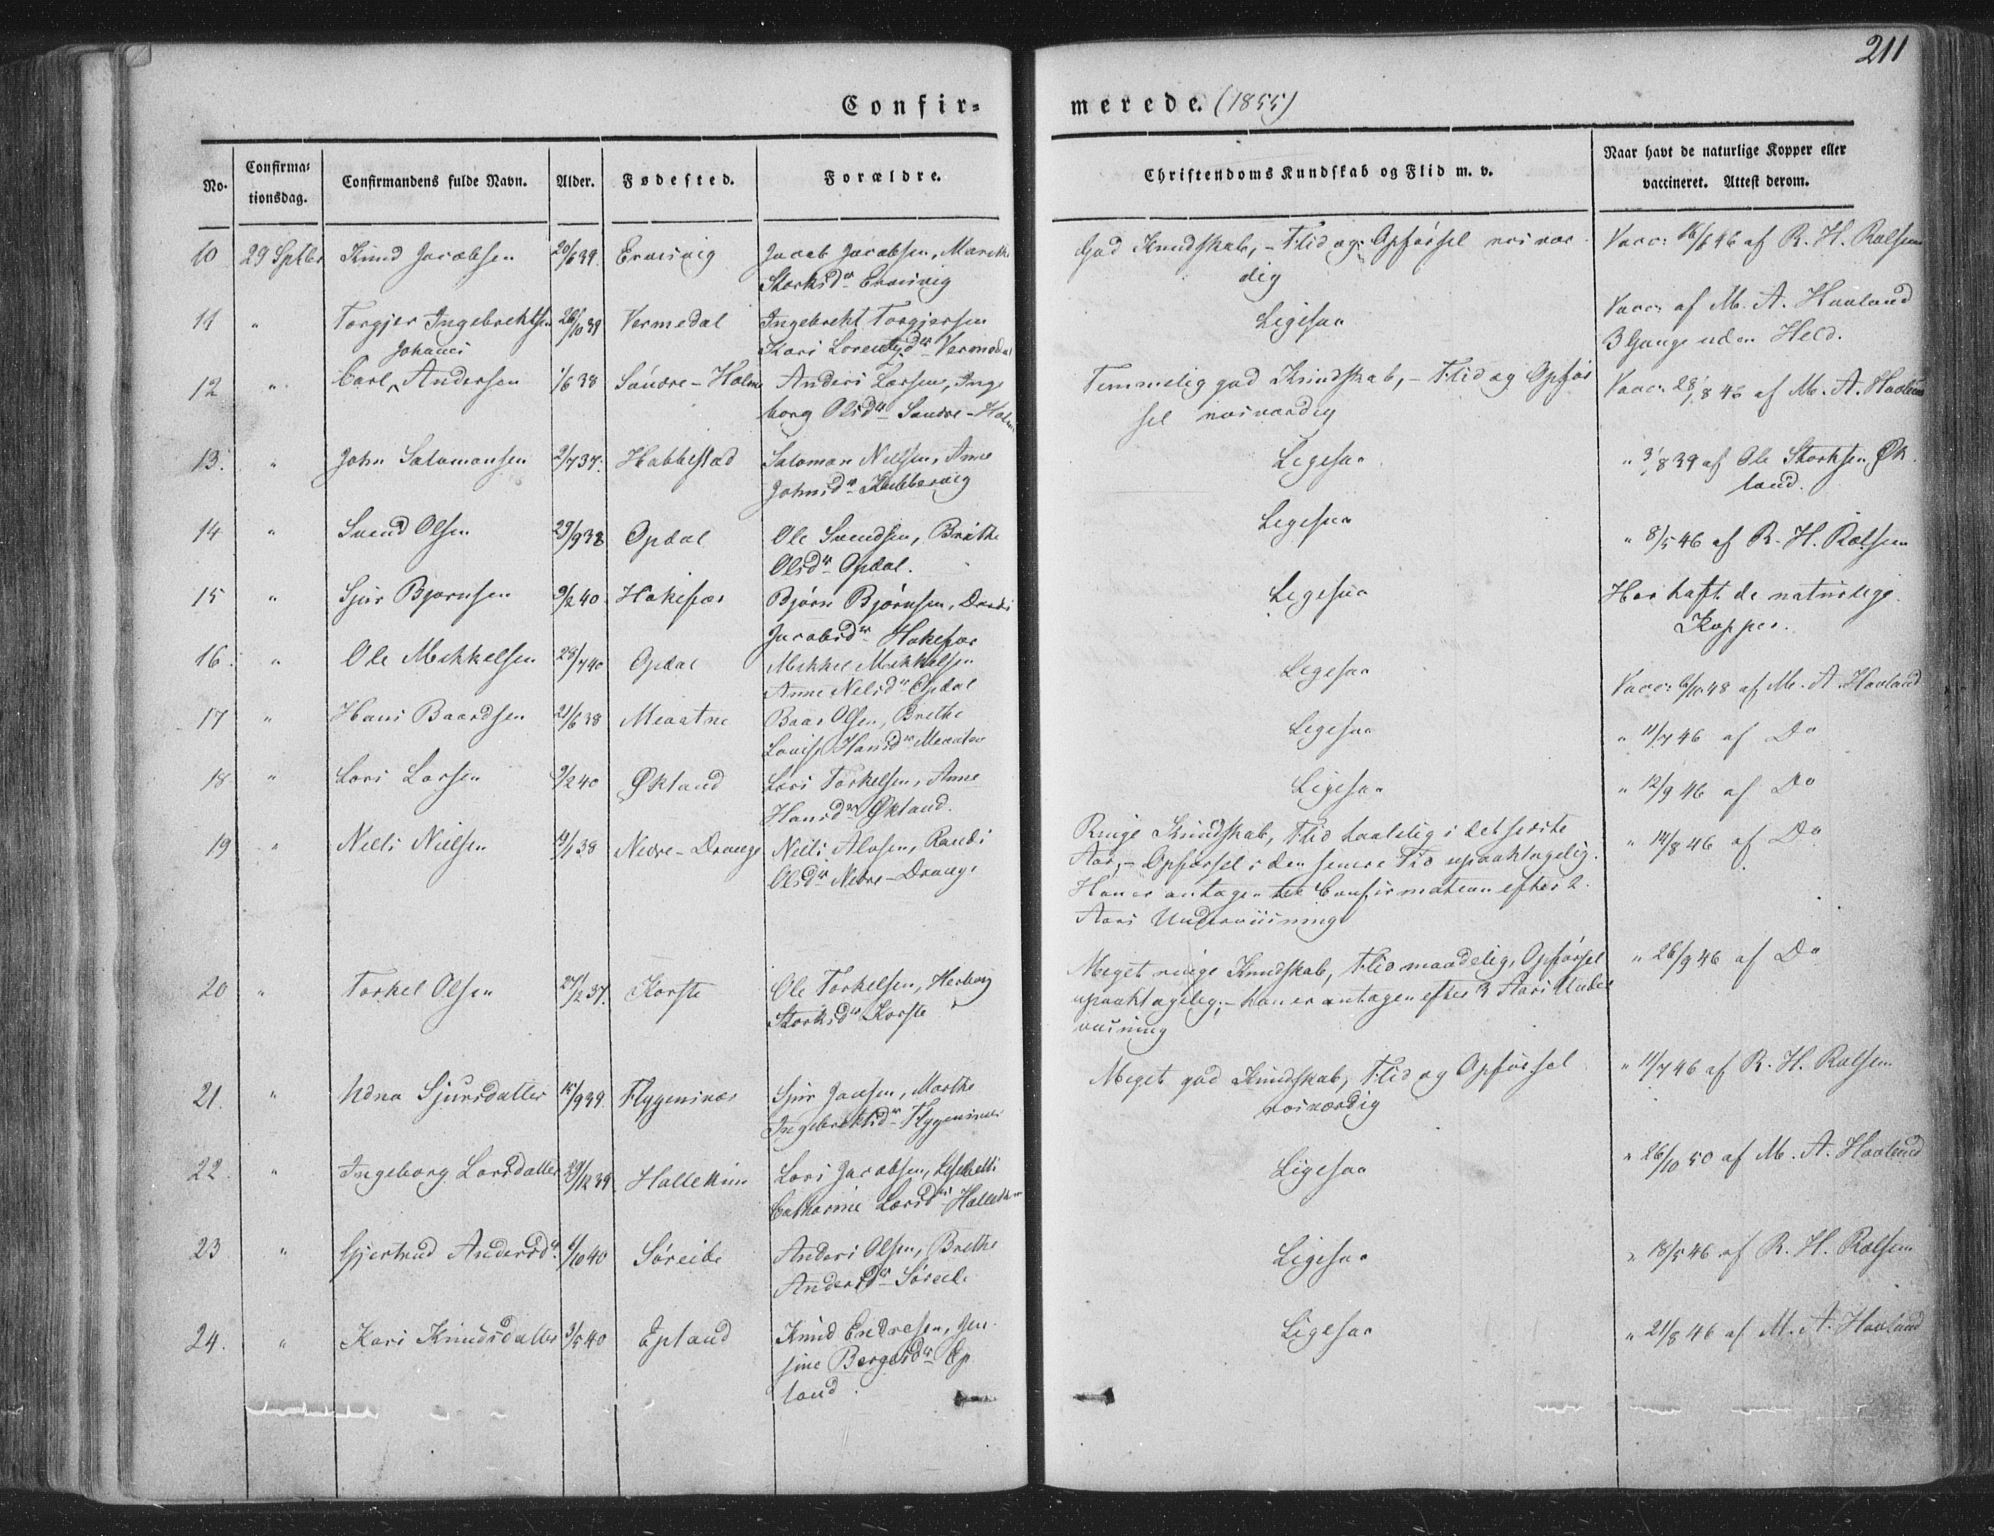 211
Confir-
merede. (1855)
No.
Confirma-
tionsdag.
Confirmandens fulde Navn.
Alder.
Fødested.
Forældre.
Christendoms Kundskab og Flid m. v.
Naar havt de naturlige Kopper eller
vaccineret. Attest derom.
10 29 Septbr Knud Jacobsen 20/6 39. Ervesvig Jacob Jacobsen, Marithe
Storksdr Ervesvig
God Kundskab, - Flid og Opførsel rosvær
dig
Vacc: 16/6 46 af R. H. Rolfsen
11 " Torgjer Ingebrektsen 26/10 39 Vermedal Ingebrekt Torgjersen
Kari Lorentzdr Vermedal
Ligesaa
Vacc: af M. A. Havland
3 Gange uden Held.
Johannes
12 " Carl Andersen 1/6 38 Søndre-Holme Anders Larsen, Inge
borg Olsdr Søndre-Holme
Temmelig god Kundskab, - Flid og Opfør
sel rosværdig
Vacc: 28/8 46 af M. A. Havland
13. " John Salamonsen 2/7 37. Habbestad Salamon Nielsen, Anne
Johnsdr Kubbervig
Ligesaa
" 3/8 39 af Ole Storksen Øk
land.
14 " Svend Olsen 29/9 38 Opdal Ole Svendsen, Brithe
Olsdr Opdal.
Ligesaa
" 8/5 46 af R. H. Rolfsen
15 " Sjur Bjørnsen 9/2 40. Hakefær Bjørn Bjørnsen,
Jacobsdr Hakefær
Ligesaa
Har haft de naturlige
Kopper.
16. " Ole Mikkelsen 28/7 40 Opdal Mikkel Mikkelsen
Anne Nelsdr Opdal
Ligesaa
Vacc: 6/10 48 af M. A. Havland
17 " Hans Baardsen 21/6 38 Meaatne Baar Olsen, Brithe
Lovise Hansdr Meaatne
Ligesaa
" 11/7 46 af Do
18 " Lars Larsen 9/2 40 Økland Lars Torkelsen, Anne
Hansdr Økland.
Ligesaa
" 12/9 46 af Do
19 " Niels Nielsen 13/1 38 Nedre-Drange Niels Alvsen, Randi
Olsdr Nedre-Drange
Ringe Kundskab, Flid taalelig i det sidste
Aar, - Opførsel i den senere Tid upaaklagelig.
Han er antagen til Confirmation efter 2
Aars Underviisning
" 14/8 46 af Do
20 " Torkel Olsen 27/2 37. Korste Ole Torkelsen, Herborg
Storksdr Korste
Meget ringe Kundskab, Flid maadelig, Opførsel
upaaklagelig, - han er antagen efter 3 Aars Under
viisning
" 26/9 46 af Do
21. " Udna Sjursdatter 15/9 39. Flygensvær Sjur Jansen, Marthe
Ingebrektsdr Flygensvær
Meget god Kundskab, Flid og Opførsel
rosværdig
" 11/7 46 af R. H. Rolfsen
22. " Ingeborg Larsdatter 29/12 39 Hallekim Lars Jacobsen, Lisebetti
Catharine Larsdr Hallekim
Ligesaa
" 26/10 50 af M. A. Havland
23 " Gjertrud Andersdr. 6/10 40 Søreide Anders Olsen, Brithe
Andersdr Søreid.
Ligesaa
" 18/5 46 af R. H. Rolfsen
24. " Kari Knudsdatter 3/5 40 Epland Knud Endresen, Gun
sine Bergesdr Ep
land.
Ligesaa
" 21/8 46 af M. A. Havland